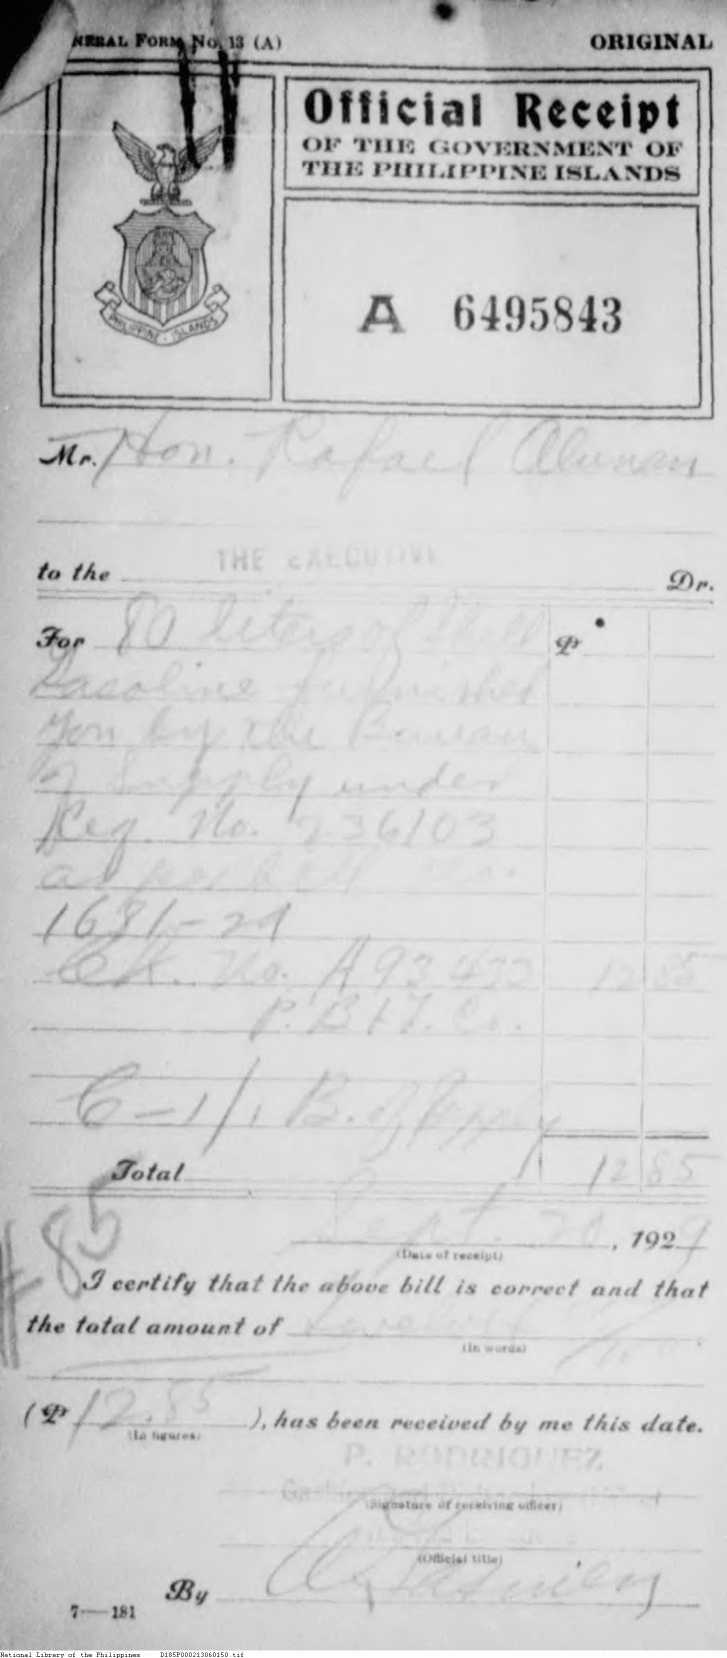 NERAL FORM No. 13 (A)
ORIGINAL
Official Receipt
OF THE GOVERNMENT OF
THE PHILIPPINE ISLANDS
PHILIPPINE ISLANDS
A 6495843
Mr. Hon. Rafael Alunan
to the THE EXECUTIVE Dr.
For 80 liters of Shell ₱
Gasoline furnished
you by the Bureau
of Supply under
Req. No. 236103
as per bill No.
1681-29
Ck. No. A 93432 12 85
P. B & T. Co.
C-1/1 B. of Supply
Total 12 85
# 85
Sept. 20, 1929
(Date of receipt)
I certify that the above bill is correct and that
the total amount of Twelve
(In words)
(₱ 12.85 ), has been received by me this date.
(In figures)
P. RODRIGUEZ
(Signature of receiving officer)
(Official title)
By
7—181
National Library of the Philippines D185P000213060150.tif